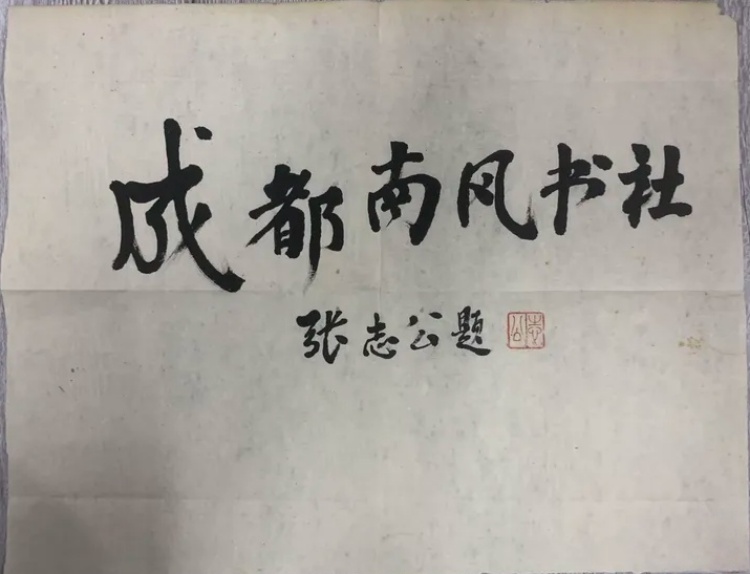 成都南风书社
张志公题
志公